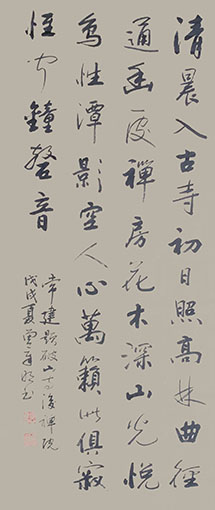 清晨入古寺初日照高林曲徑
通幽處禪房花木深山光悅
鳥性潭影空人心萬籟此俱寂
惟聞鐘磬音
常建題破山寺後禪院
戊戌夏曾书